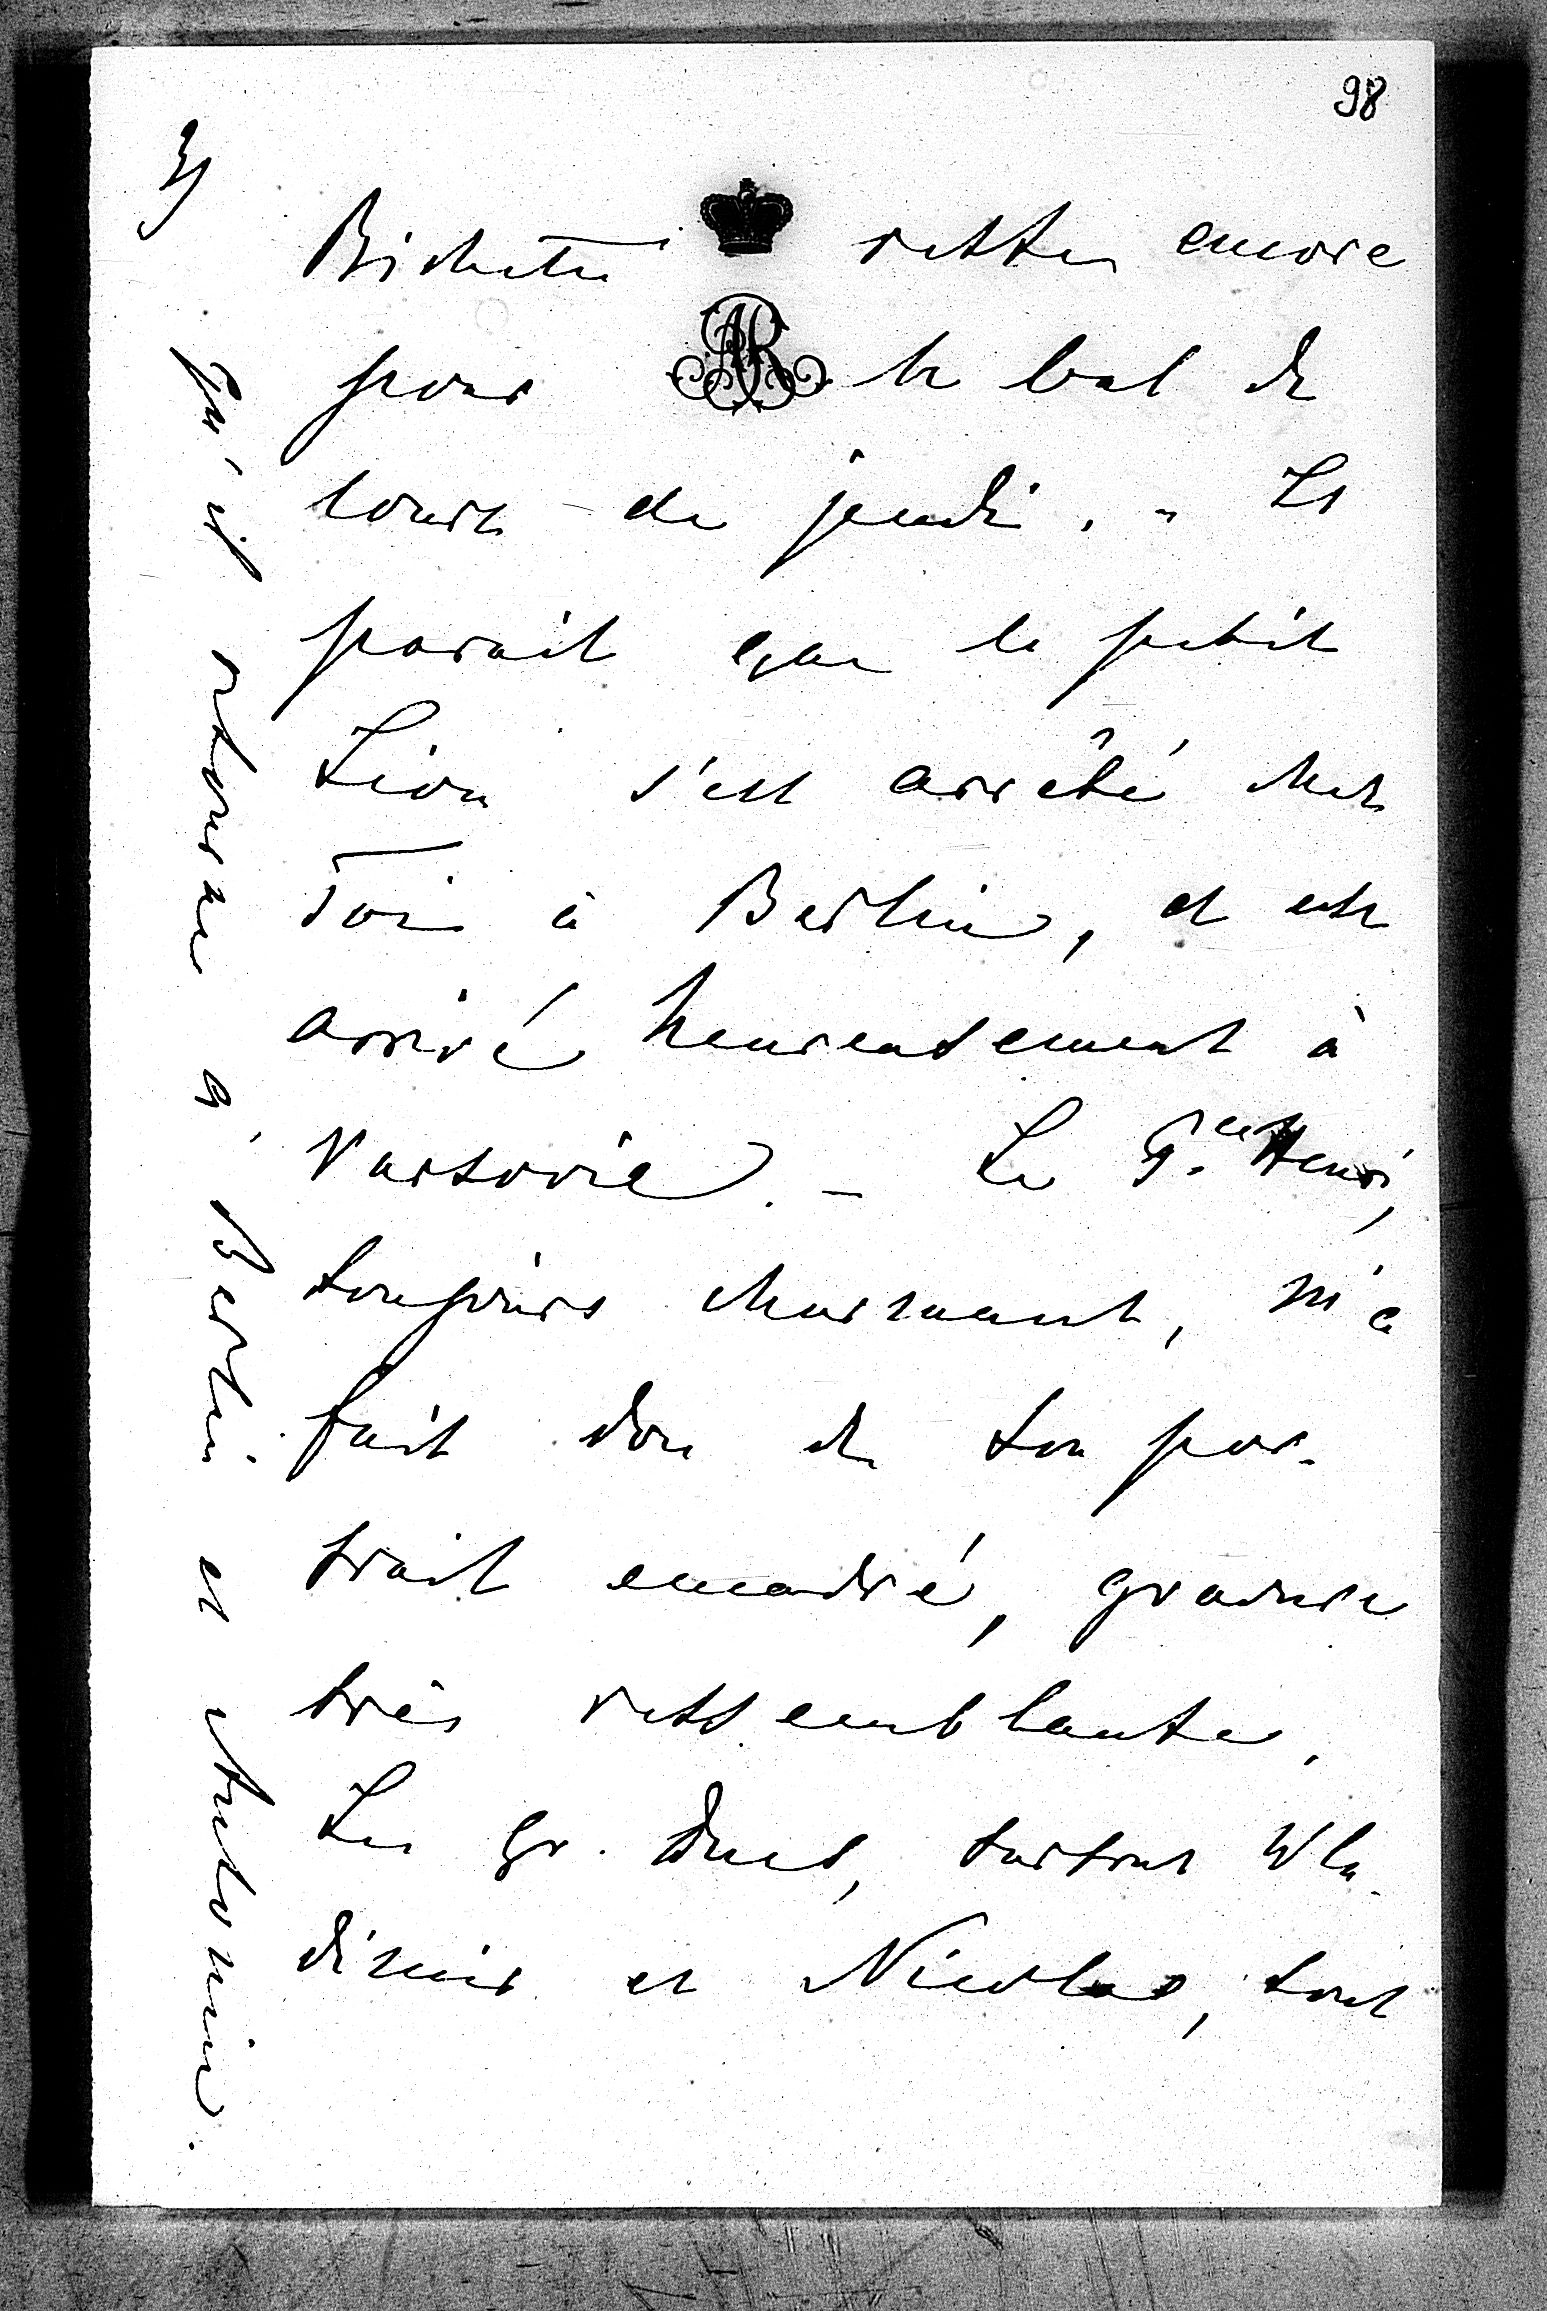 98
3)
Bichette reste encore
pour le bal de
cour de jeudi. - Il
parait que le petit
Léon s'est arrêté chez
Toi à Berlin, et est
arrivé heureusement à
Varsovie. - Le Pce Henri,
toujours charmant, m'a
fait don de son por-
trait encadré, gravure
très ressemblante.
Les gr. Ducs, surtout Wla-
dimir et Nicolas, sont
qu'il retourne à Berlin et Antonin.